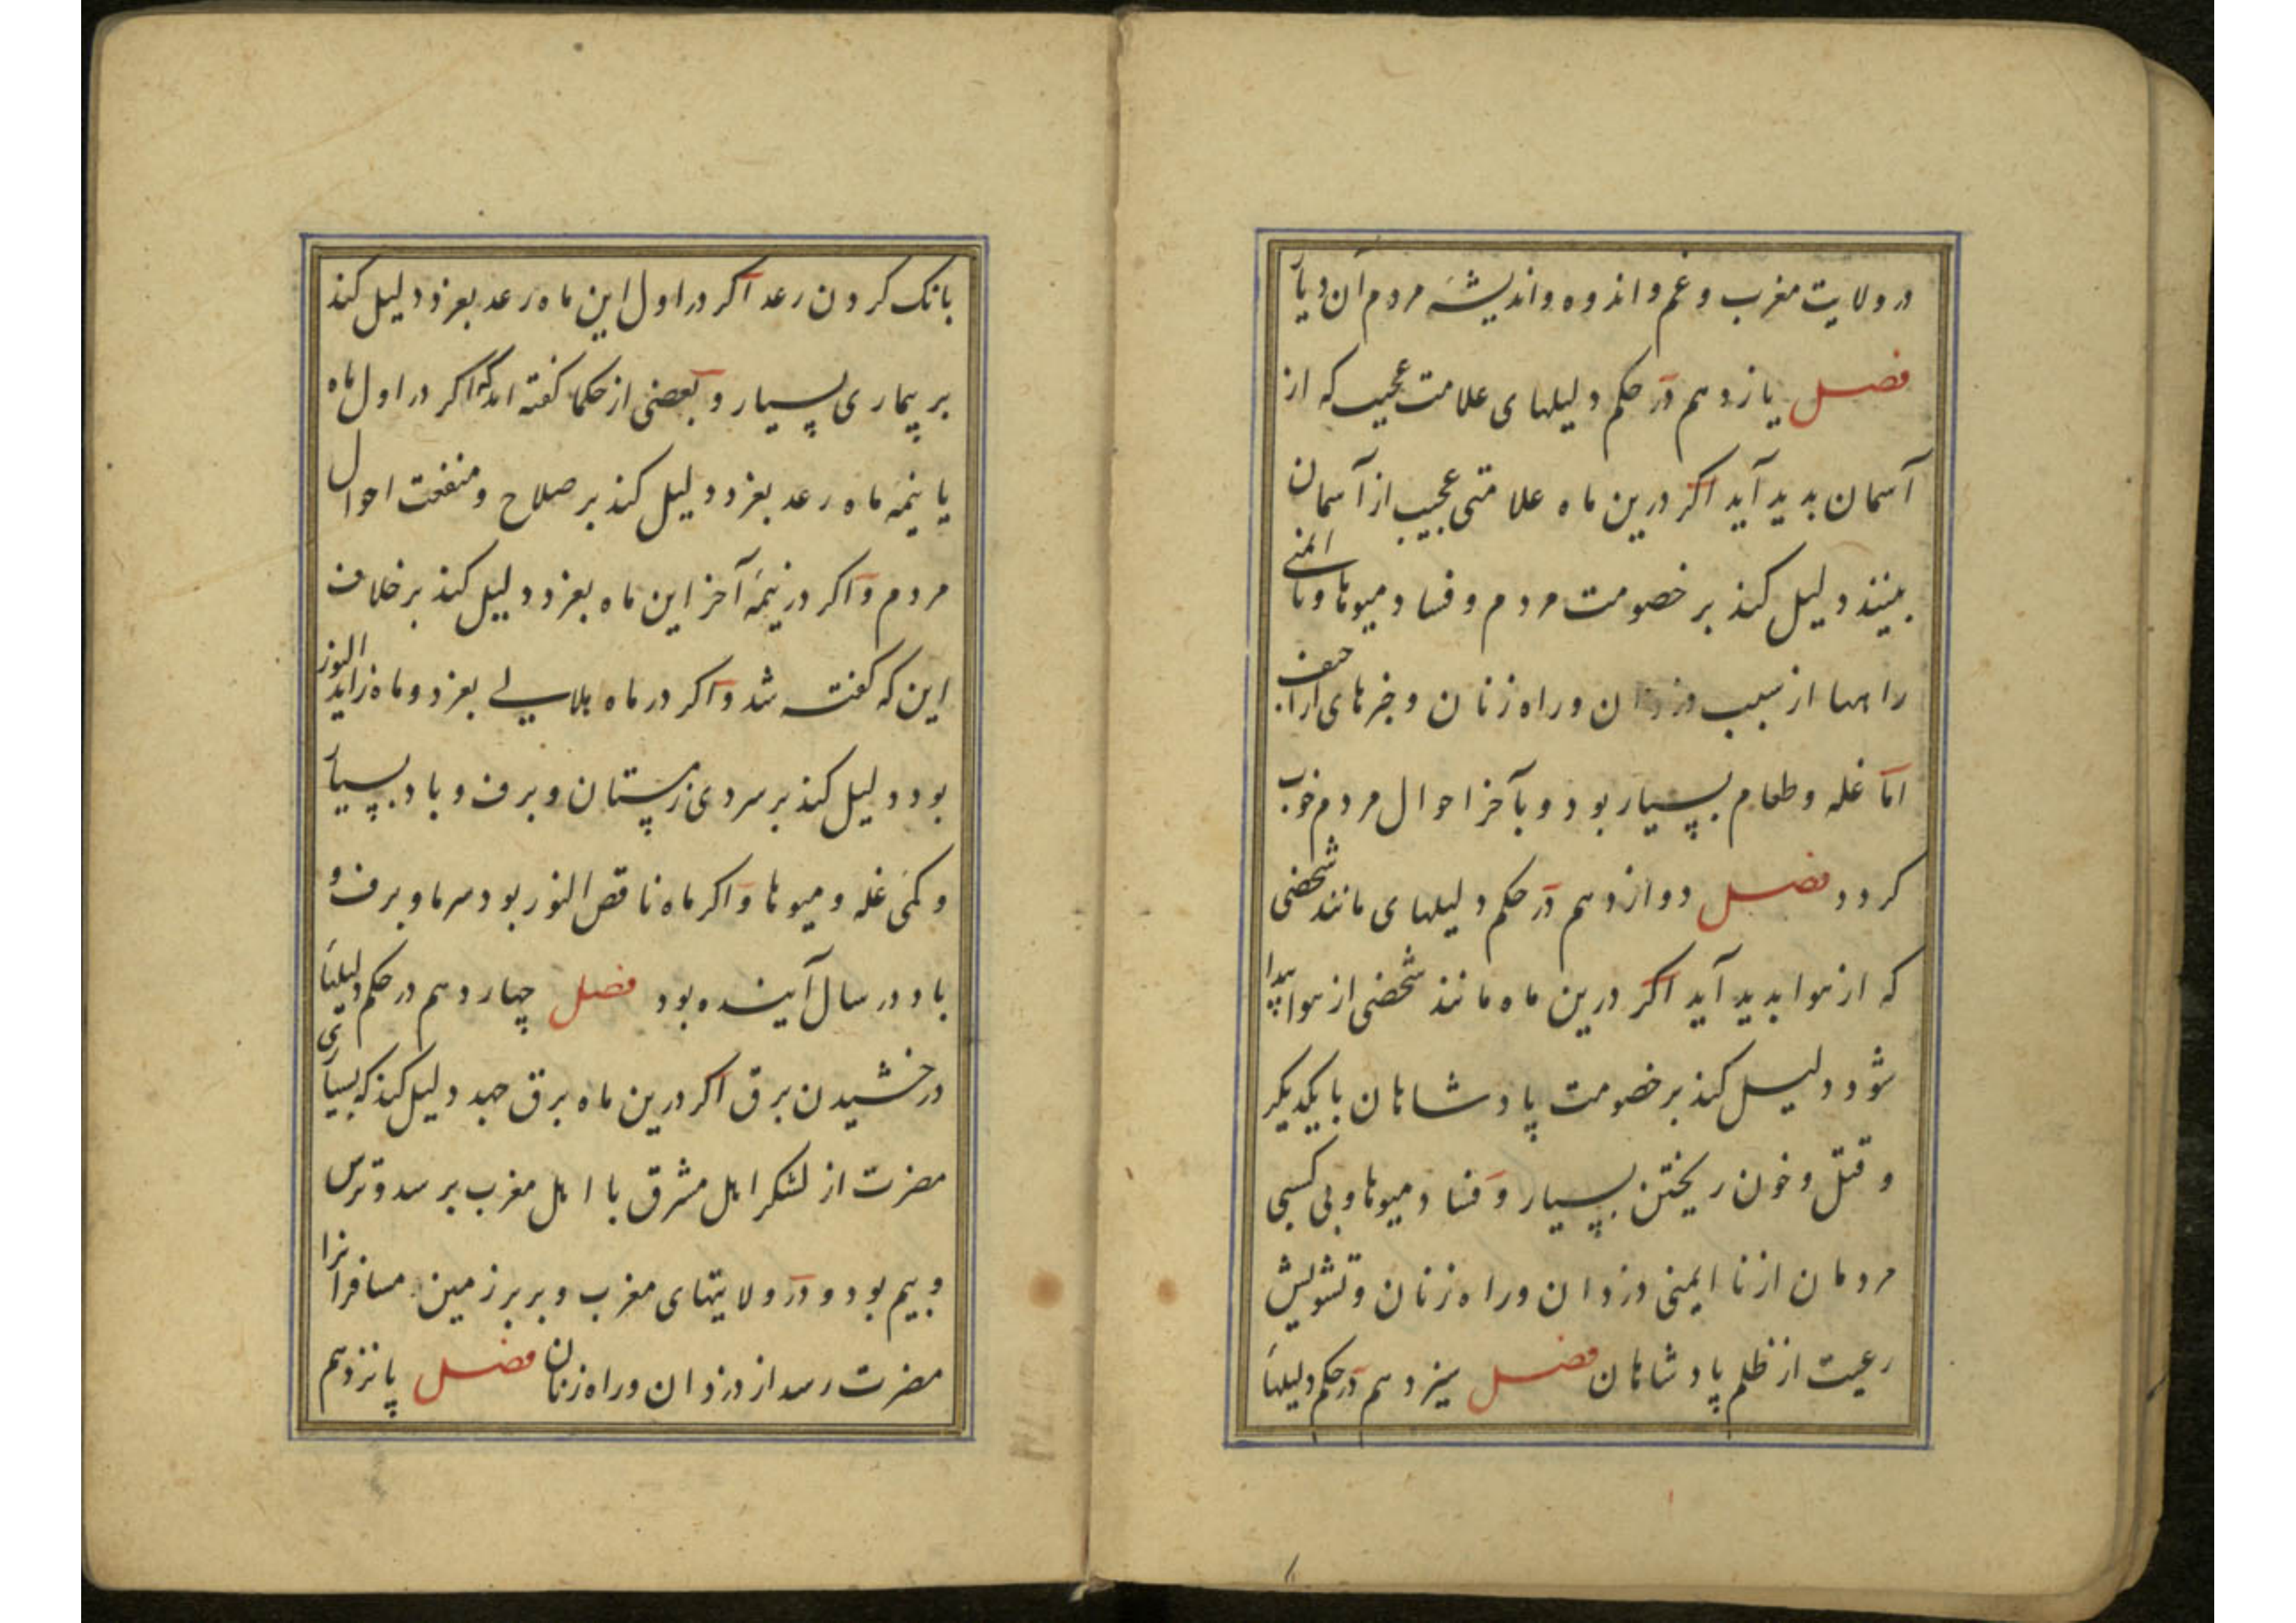 در ولایت مغرب و غم و اندوه و اندیشهٔ مردم آن دیار
فصل یازدهم در حکم دلیلهای علامت عجیب که از
آسمان بدید آید اکر درین ماه علامتی عجیب از آسمان
ببینند دلیل کند بر خصومت مردم و فساد میوها و نا ایمنی
راهها از سبب دزدان و راه زنان و خبرهای اراجیف
اما غله و طعام بسیار بود و بآخر احوال مردم خوب
کردد فصل دوازدهم در حکم دلیلهای مانند شخصی
که از هوا بدید آید اکر درین ماه مانند شخصی از هوا پیدا
شود دلیل کند بر خصومت پادشاهان با یکدیکر
و قتل و خون ریختن بسیار و فساد میوها و بی کسبی
مردمان از نا ایمنی دزدان و راه زنان و تشویش
رعیت از ظلم پادشاهان فصل سیزدهم در حکم دلیلهاء
بانک کردن رعد اکر در اول این ماه رعد بغرد دلیل کند
بر بیماری بسیار و بعضی از حکما کفته اند که اکر در اول ماه
یا نیمه ماه رعد بغرد دلیل کند بر صلاح و منفعت احوال
مردم و اکر در نیمهٔ آخر این ماه بغرد دلیل کند بر خلاف
این که کفته شد و اکر در ماه هلالی بغرد و ماه زاید النور
بود دلیل کند بر سردی زمستان و برف و باد بسیار
و کمی غله و میوها و اکر ماه ناقص النور بود سرما و برف و
باد در سال آینده بود فصل چهاردهم در حکم دلیلهای
درخشیدن برق اکر درین ماه برق جهد دلیل کند که بسیاری
مضرت از لشکر اهل مشرق با اهل مغرب برسد و ترس
و بیم بود و در ولایتهای مغرب و بربر زمین مسافرانرا
مضرت رسد از دزدان و راه زنان فصل پانزدهم